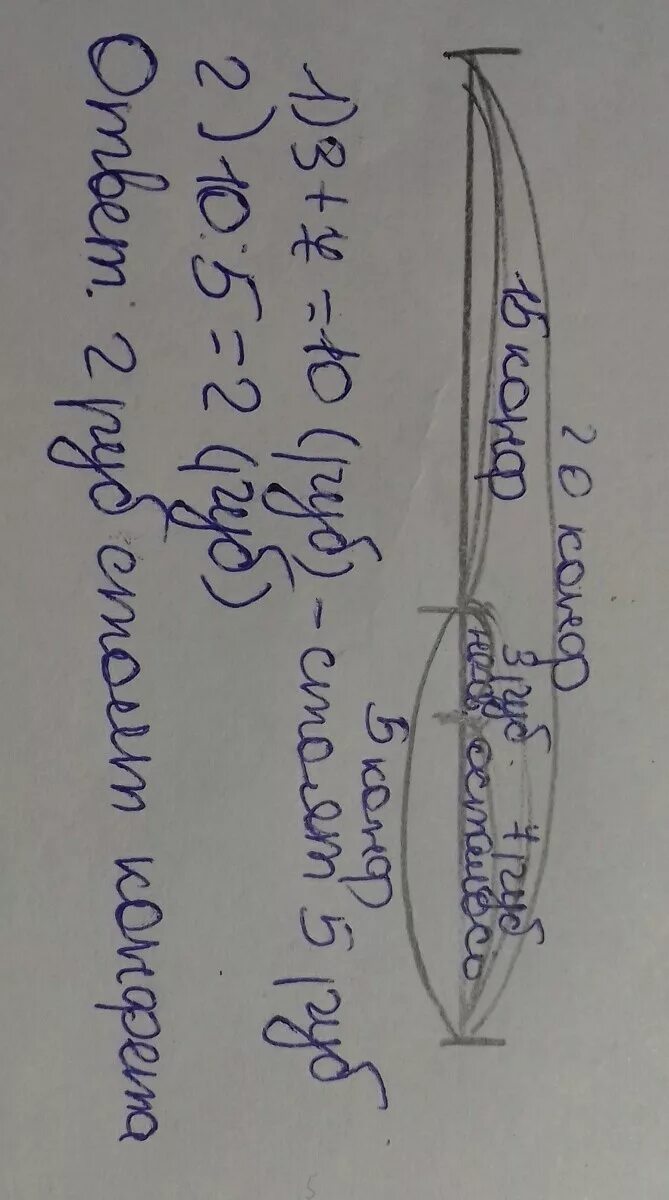 20 конф
15 конф
3 руб. 7 руб
нес. осталось
5 конф
1) 3 + 7 = 10 (руб) - стоят 5 руб
2) 10 : 5 = 2 (руб)
Ответ. 2 руб стоит конфета